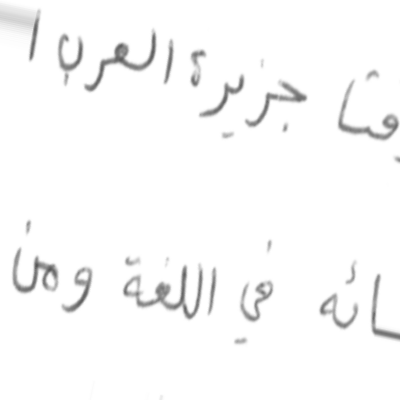 وقتا جزيرة العرب ا
سائه في اللغة ومن